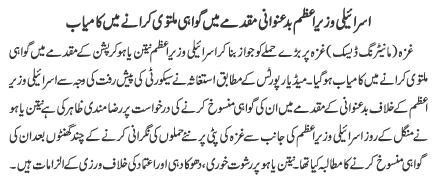 اسرائیلی وزیر اعظم بدعنوانی مقدمے میں گواہی ملتوی کرانے میں کامیاب
غزہ (مانیٹرنگ ڈیسک) غزہ پر بڑے حملے کو جواز بنا کر اسرائیلی وزیر اعظم نیتن یاہو کرپشن کے مقدمے میں گواہی
ملتوی کرانے میں کامیاب ہو گیا۔ میڈیا رپورٹس کے مطابق استغاثہ نے سیکورٹی کی پیش رفت کی وجہ سے اسرائیلی وزیر
اعظم کے خلاف بدعنوانی کے مقدمے میں ان کی گواہی منسوخ کرنے کی درخواست پر رضا مندی ظاہر کی ہے نیتن یاہو
نے منگل کے روز اسرائیلی وزیر اعظم کی جانب سے غزہ کی پٹی پر نئے حملوں کی نگرانی کرنے کے چند گھنٹوں بعد ان کی
گواہی منسوخ کرنے کا مطالبہ کیا تھا۔ نیتن یاہو پر رشوت خوری، دھوکا دہی اور اعتماد کی خلاف ورزی کے الزامات ہیں۔